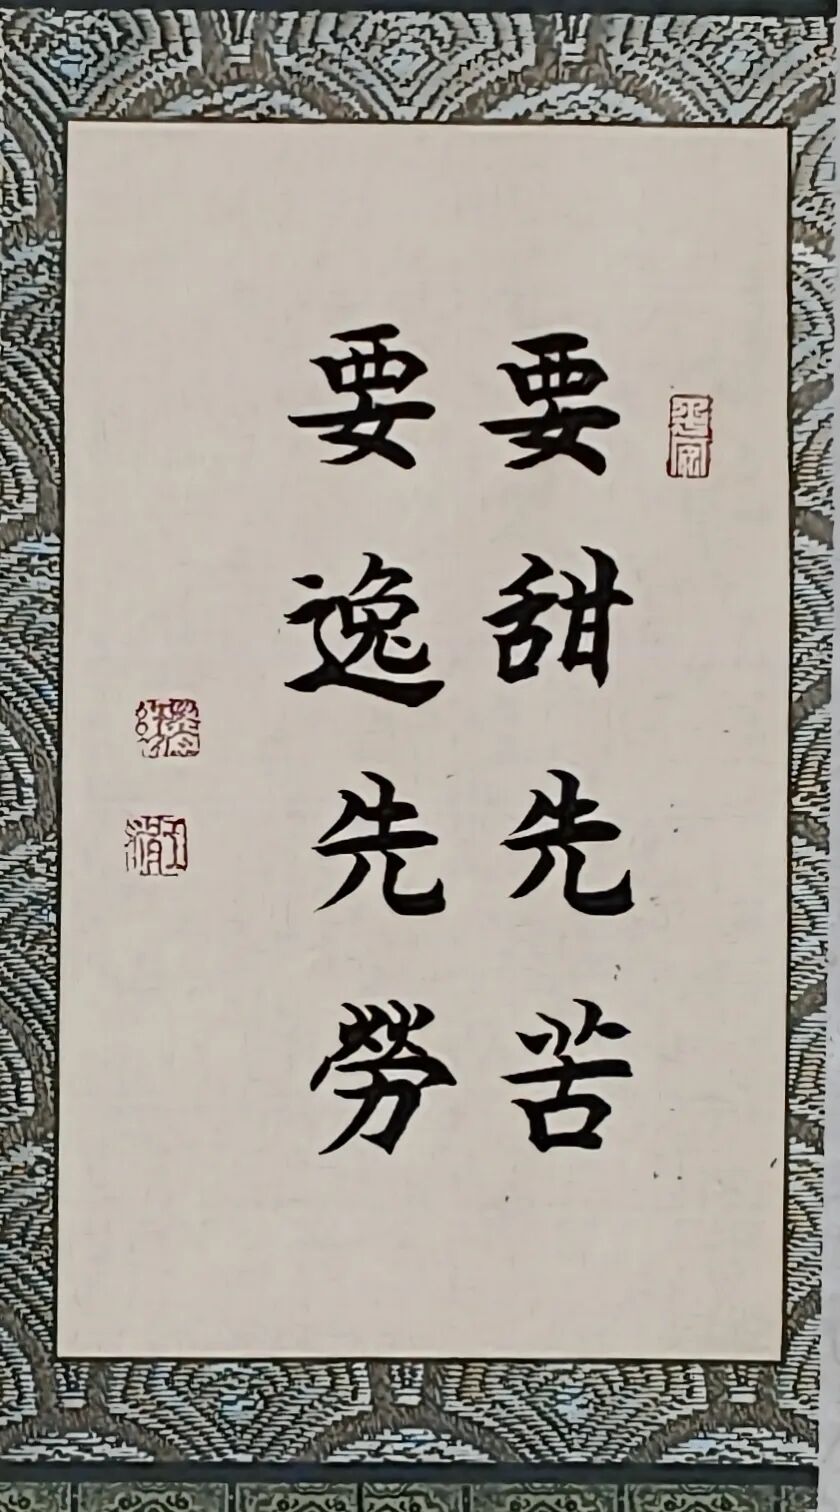 要甜先苦
要逸先勞